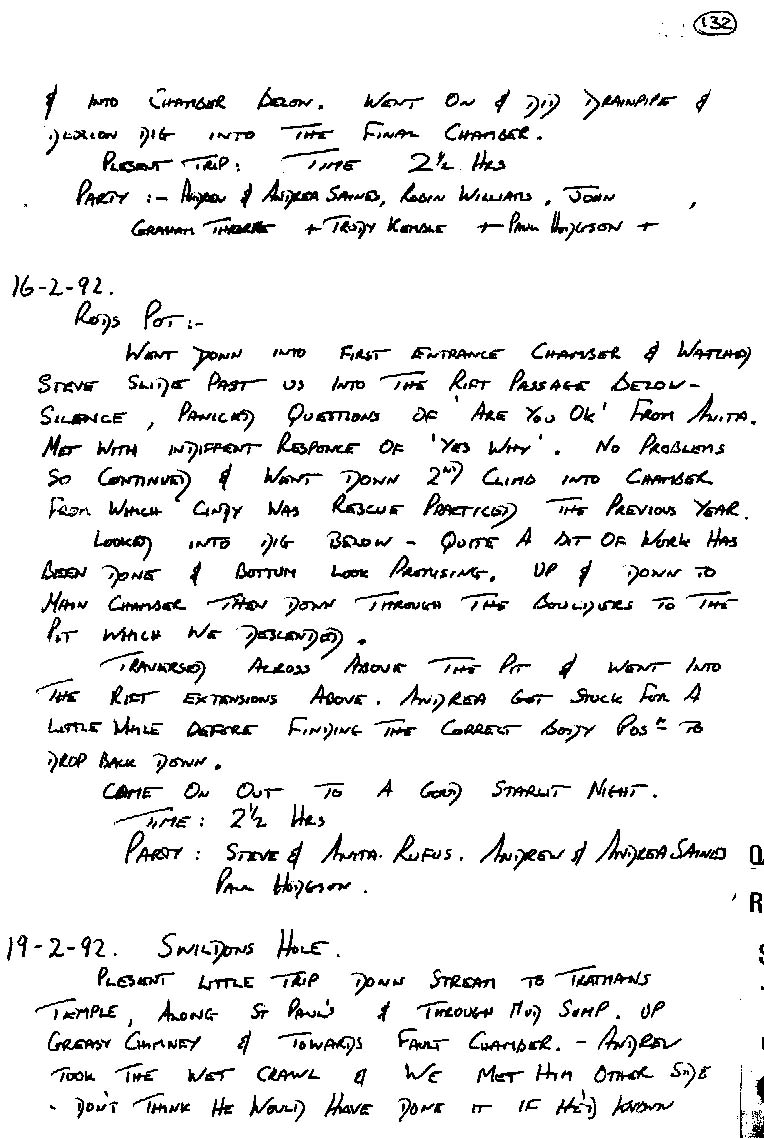 132
& INTO CHAMBER BELOW. WENT ON & DID DRAINPIPE &
DIG INTO THE FINAL CHAMBER.
PLESENT TRIP: TIME 2½ HRS
PARTY :- ANDREW & ANDREA SAINES, ROBIN WILLIAMS, JOHN ,
GRAHAM THORNE + TRUDY KEMBLE + PAUL HODGSON +
16-2-92.
RODS POT:-
WENT DOWN INTO FIRST ENTRANCE CHAMBER & WATCHED
STEVE SLIDE PAST US INTO THE RIFT PASSAGE BELOW -
SILENCE, PANICKED QUESTIONS OF 'ARE YOU OK' FROM ANITA.
MET WITH INDIFFENT RESPONCE OF 'YES WHY'. NO PROBLEMS
SO CONTINUED & WENT DOWN 2ND CLIMB INTO CHAMBER
FROM WHICH CINDY WAS RESCUE PRACTICED THE PREVIOUS YEAR.
LOOKED INTO DIG BELOW - QUITE A BIT OF WORK HAS
BEEN DONE & BOTTUM LOOK PROMISING. UP & DOWN TO
MAIN CHAMBER THEN DOWN THROUGH THE BOULDERS TO THE
PIT WHICH WE DESCENDED.
TRAVERSED ACROSS ABOVE THE PIT & WENT INTO
THE RIFT EXTENSIONS ABOVE. ANDREA GOT STUCK FOR A
LITTLE WHILE BEFORE FINDING THE CORRECT BODY POSN TO
DROP BACK DOWN.
CAME ON OUT TO A GOOD STARLIT NIGHT.
TIME: 2½ HRS
PARTY: STEVE & ANITA. RUFUS. ANDREW & ANDREA SAINES
PAUL HODGSON.
19-2-92. SWILDONS HOLE.
PLESENT LITTLE TRIP DOWN STREAM TO TRATMANS
TEMPLE, ALONG ST PAUL'S & THROUGH MUD SUMP. UP
GREASY CHIMNEY & TOWARDS FAULT CHAMBER. - ANDREW
TOOK THE WET CRAWL & WE MET HIM OTHER SIDE
- DON'T THINK HE WOULD HAVE DONE IT IF HE'D KNOWN